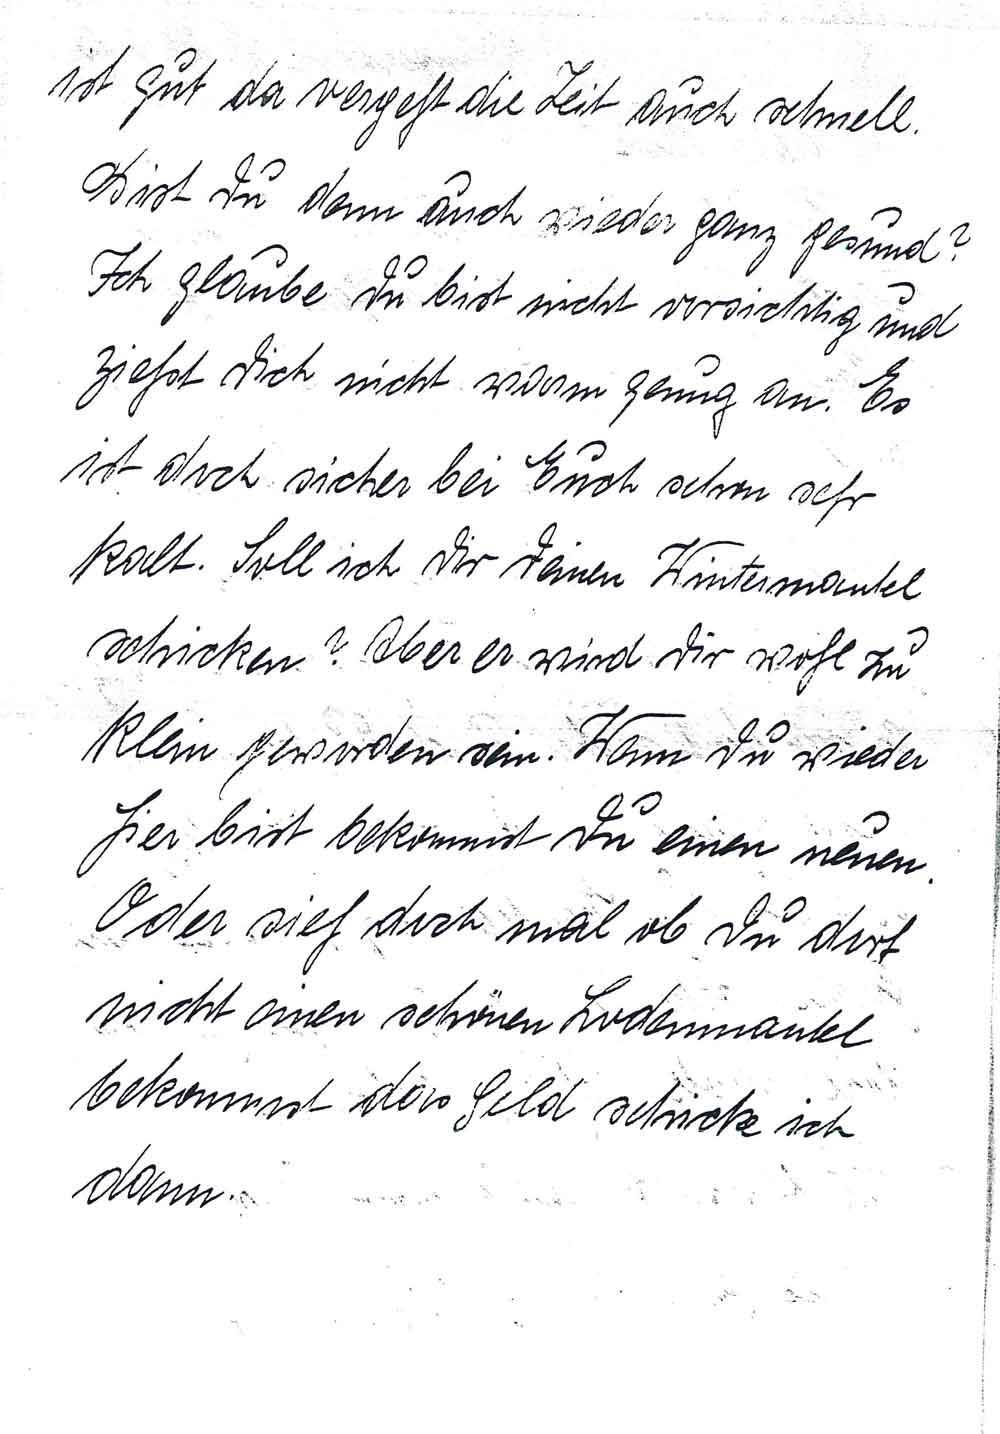 ist gut da vergeht die Zeit auch schnell.
Bist Du denn auch wieder ganz gesund?
Ich glaube Du bist nicht vorsichtig und
ziehst Dich nicht warm genug an. Es
ist doch sicher bei Euch schon sehr
kalt. Soll ich Dir Deinen Wintermantel
schicken? Aber er wird Dir wohl zu
klein geworden sein. Wenn Du wieder
hier bist bekommst Du einen neuen.
Oder sieh doch mal ob Du dort
nicht einen schönen Lodenmantel
bekommst das Geld schicke ich
dann.